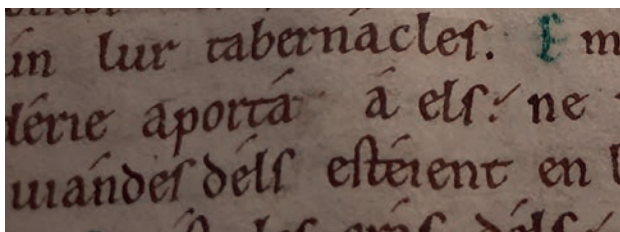 in lur tabernácles. E
lérie aportá á els: ne
uiándes dels estéient en